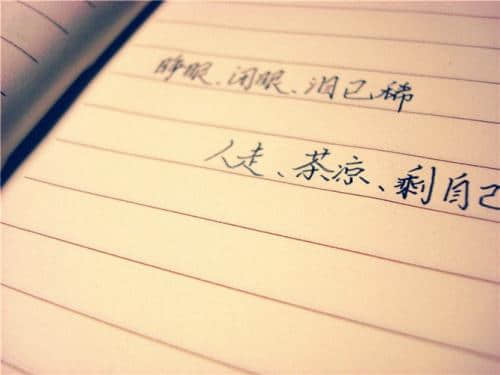 睁眼、闭眼、泪已稀
人走、茶凉、剩自己